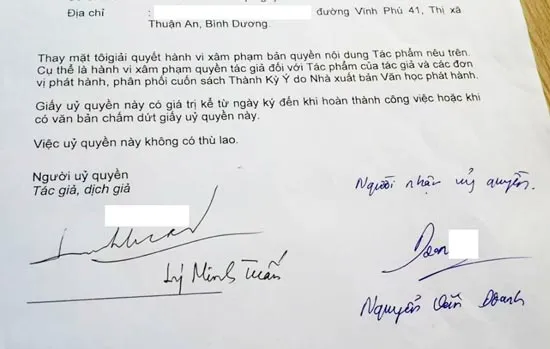 Địa chỉ : đường Vĩnh Phú 41, Thị xã
Thuận An, Bình Dương.
Thay mặt tôigiải quyết hành vi xâm phạm bản quyền nội dung Tác phẩm nêu trên.
Cụ thể là hành vi xâm phạm quyền tác giả đối với Tác phẩm của tác giả và các đơn
vị phát hành, phân phối cuốn sách Thành Kỳ Ý do Nhà xuất bản Văn học phát hành.
Giấy uỷ quyền này có giá trị kể từ ngày ký đến khi hoàn thành công việc hoặc khi
có văn bản chấm dứt giấy uỷ quyền này.
Việc uỷ quyền này không có thù lao.
Người uỷ quyền
Tác giả, dịch giả
Người nhận uỷ quyền.
Lý Minh Tuấn
Doan
Nguyễn Văn Doanh